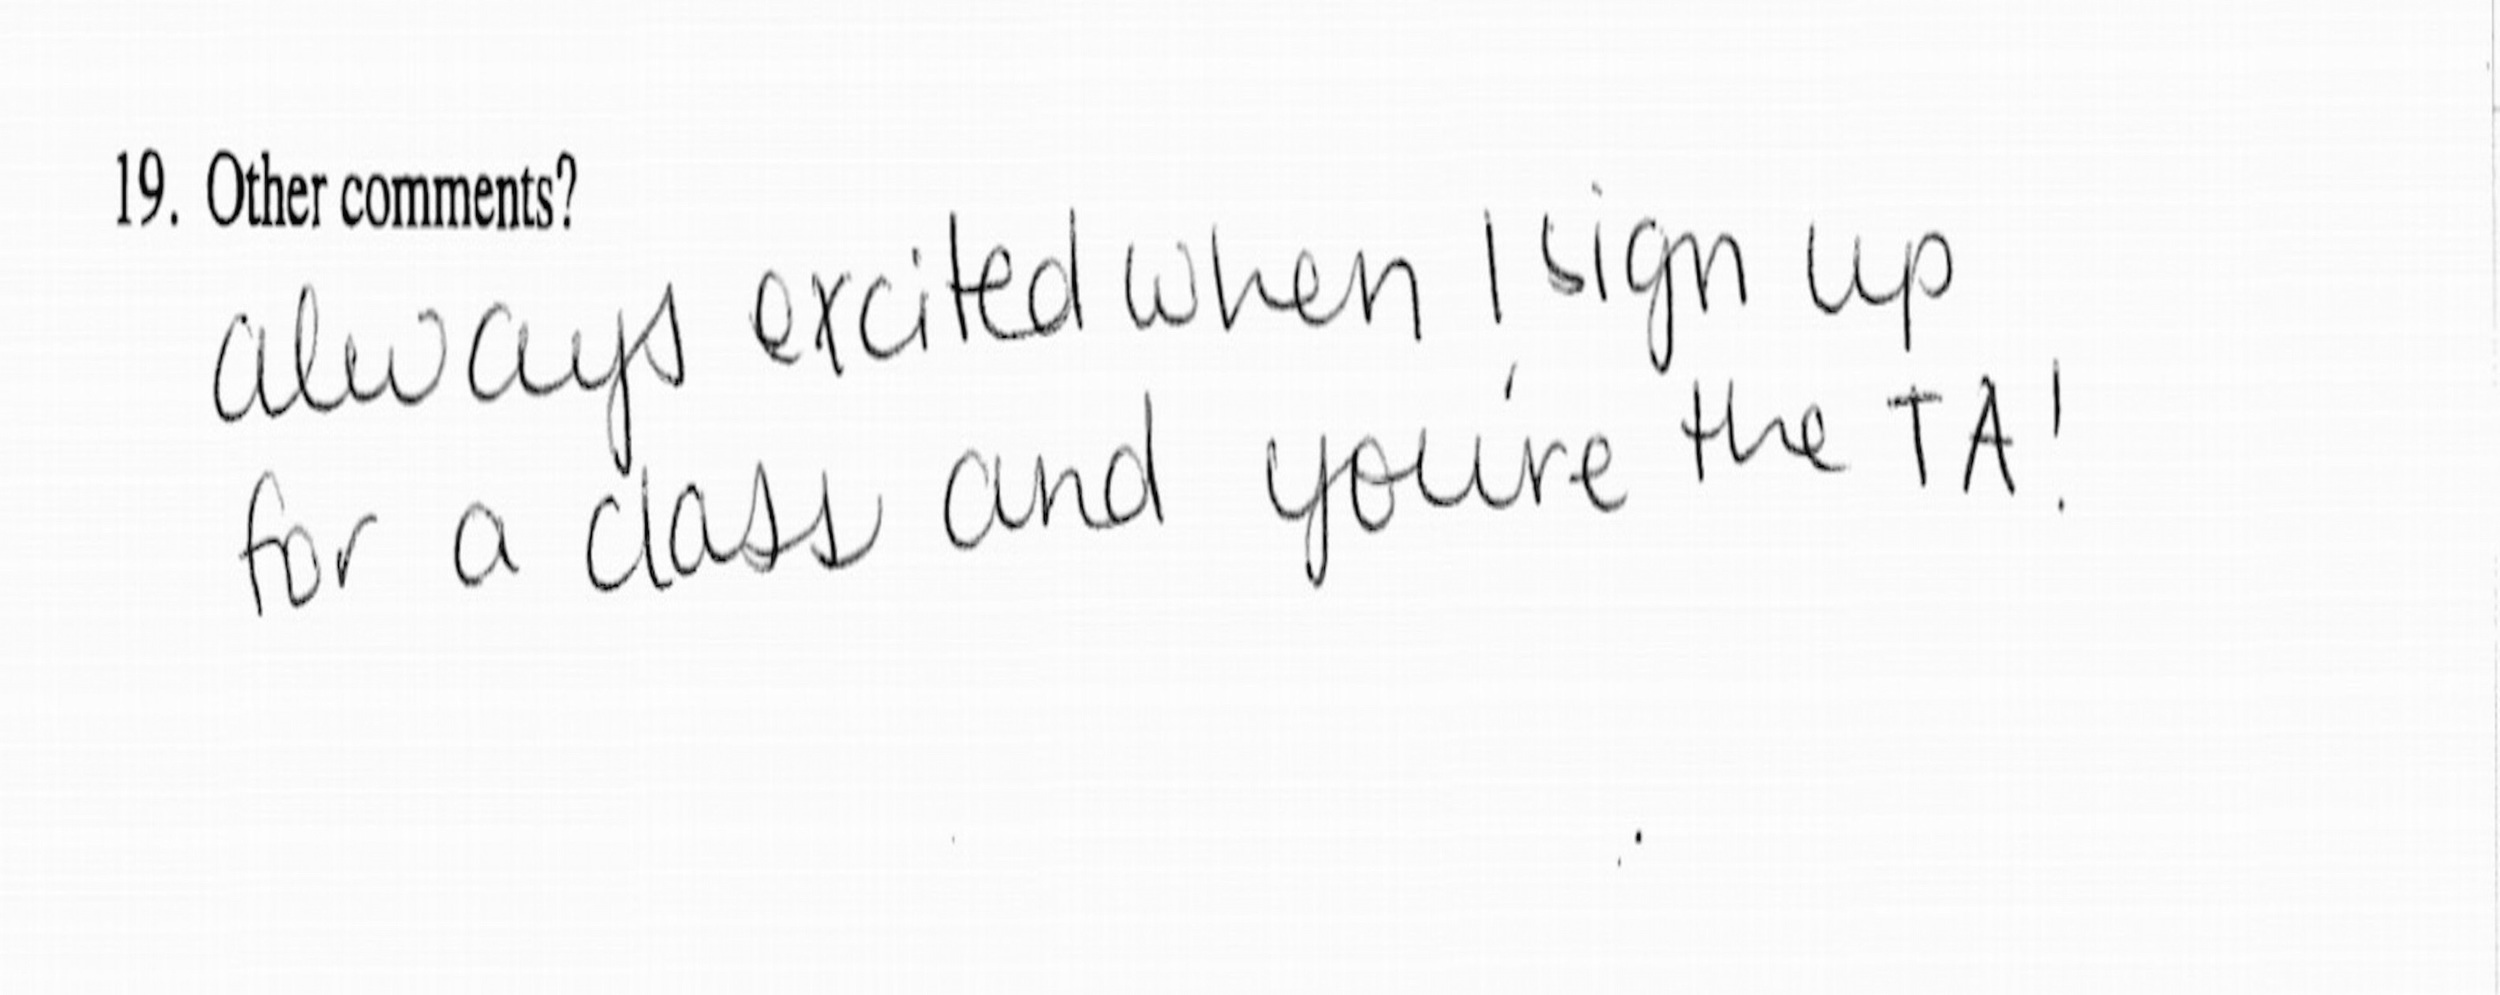 19. Other comments?
always excited when I sign up
for a class and you're the TA!